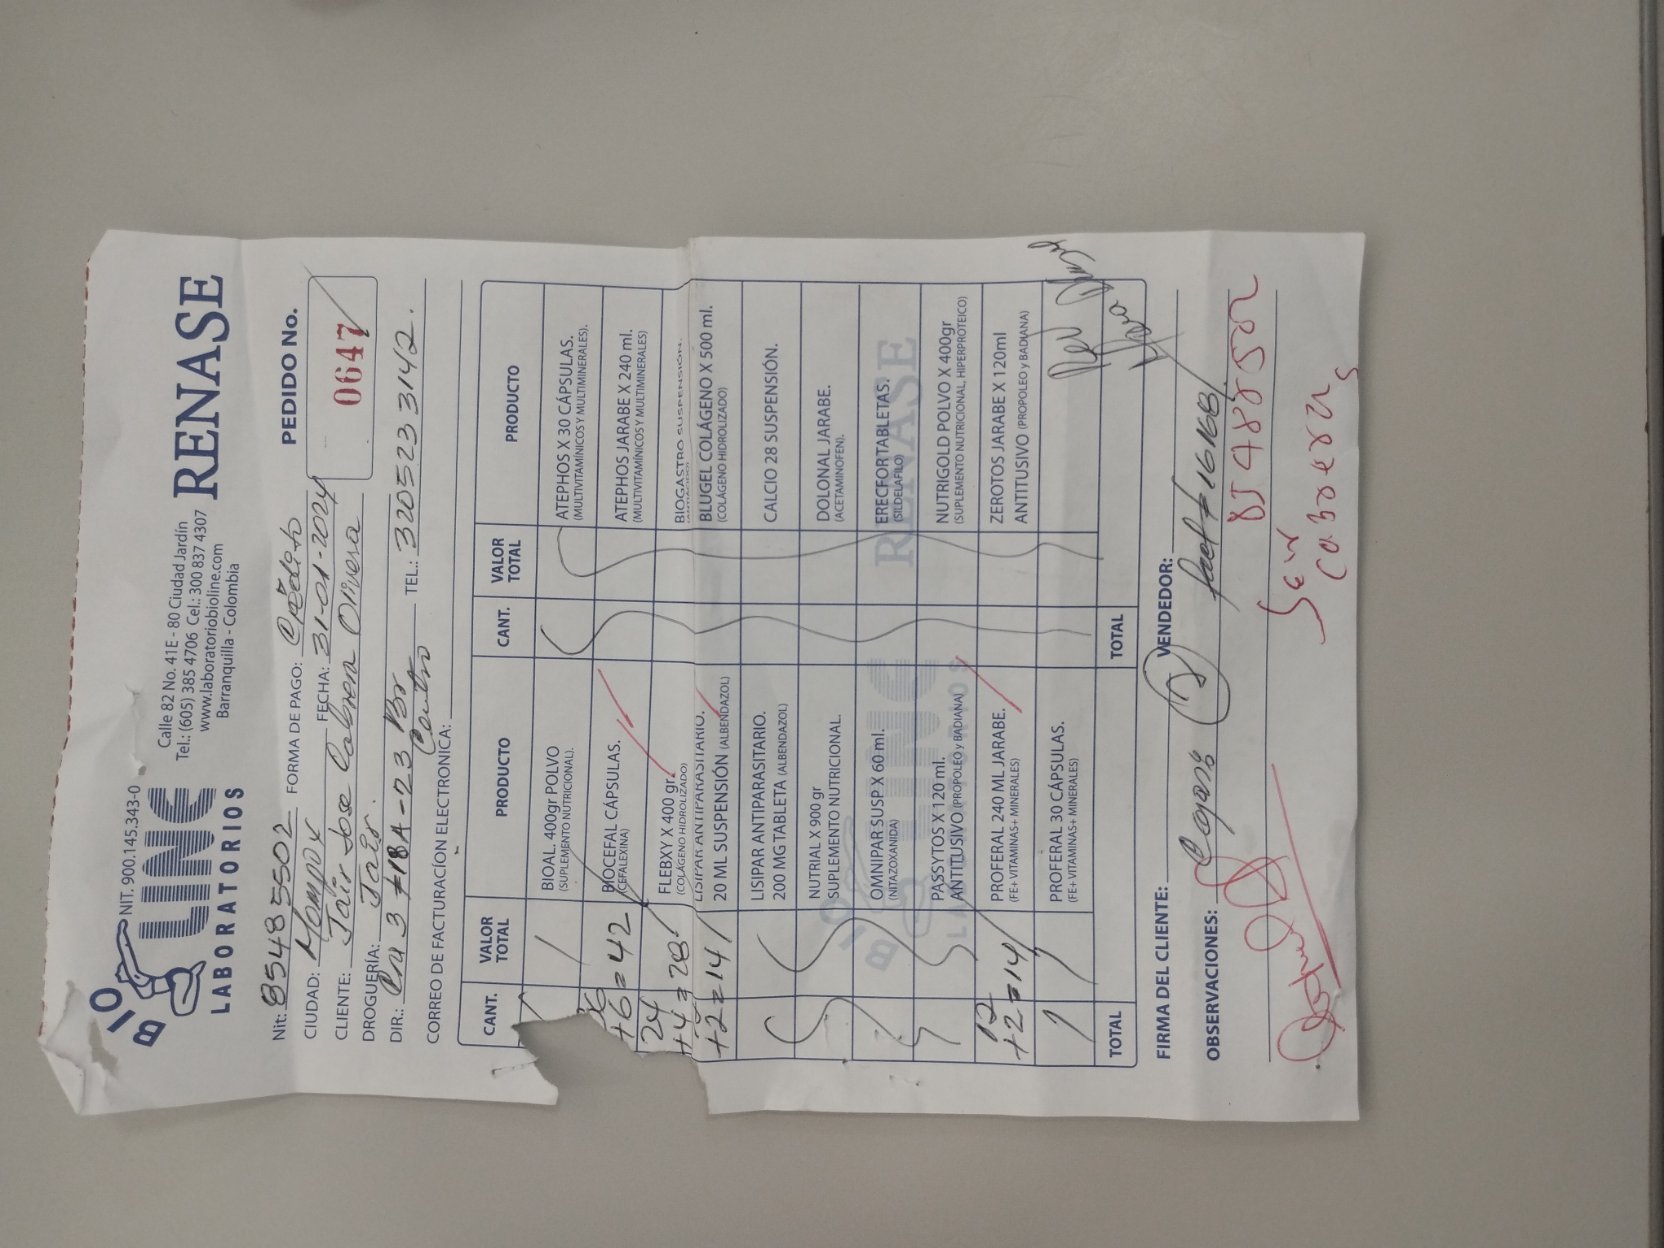 BIO
LINE
LABORATORIOS
NIT. 900.145.343-0
Calle 82 No. 41E - 80 Ciudad Jardín
Tel.: (605) 385 4706 Cel.: 300 837 4307
www.laboratoriobioline.com
Barranquilla - Colombia
RENASE
Nit: 85485502 FORMA DE PAGO: Crédito PEDIDO No.
CIUDAD: Mompox FECHA: 31-01-2024 0647
CLIENTE: Jair Jose Cabrera Olivera
DROGUERÍA: Jair.
DIR.: Cra 3 #18A-23 Br Centro TEL.: 3205233142.
CORREO DE FACTURACÍON ELECTRONICA:
CANT. VALOR TOTAL PRODUCTO CANT. VALOR TOTAL PRODUCTO
BIOAL. 400gr POLVO ATEPHOS X 30 CÁPSULAS.
(SUPLEMENTO NUTRICIONAL). (MULTIVITAMÍNICOS Y MULTIMINERALES).
+6=42 BIOCEFAL CÁPSULAS. ATEPHOS JARABE X 240 ml.
(CEFALEXINA) (MULTIVITAMÍNICOS Y MULTIMINERALES)
24
+4=28 FLEBXY X 400 gr. BIOGASTRO SUSPENSIÓN.
(COLÁGENO HIDROLIZADO)
LISIPAR ANTIPARASITARIO. BLUGEL COLÁGENO X 500 ml.
+2=14 20 ML SUSPENSIÓN (ALBENDAZOL) (COLÁGENO HIDROLIZADO)
LISIPAR ANTIPARASITARIO. CALCIO 28 SUSPENSIÓN.
200 MG TABLETA (ALBENDAZOL)
NUTRIAL X 900 gr DOLONAL JARABE.
SUPLEMENTO NUTRICIONAL. (ACETAMINOFEN).
OMNIPAR SUSP X 60 ml. ERECFORTABLETAS.
(NITAZOXANIDA) (SILDELAFILO)
PASSYTOS X 120 ml. NUTRIGOLD POLVO X 400gr
ANTITUSIVO (PROPOLEO y BADIANA) (SUPLEMENTO NUTRICIONAL, HIPERPROTEICO)
12
+2=14 PROFERAL 240 ML JARABE. ZEROTOS JARABE X 120ml
(FE+ VITAMINAS+ MINERALES) ANTITUSIVO (PROPOLEO y BADIANA)
PROFERAL 30 CÁPSULAS.
(FE+ VITAMINAS+ MINERALES)
TOTAL TOTAL
BIO LINE LABORATORIOS RENASE
FIRMA DEL CLIENTE: VENDEDOR:
OBSERVACIONES: fact #16168
Cabrera